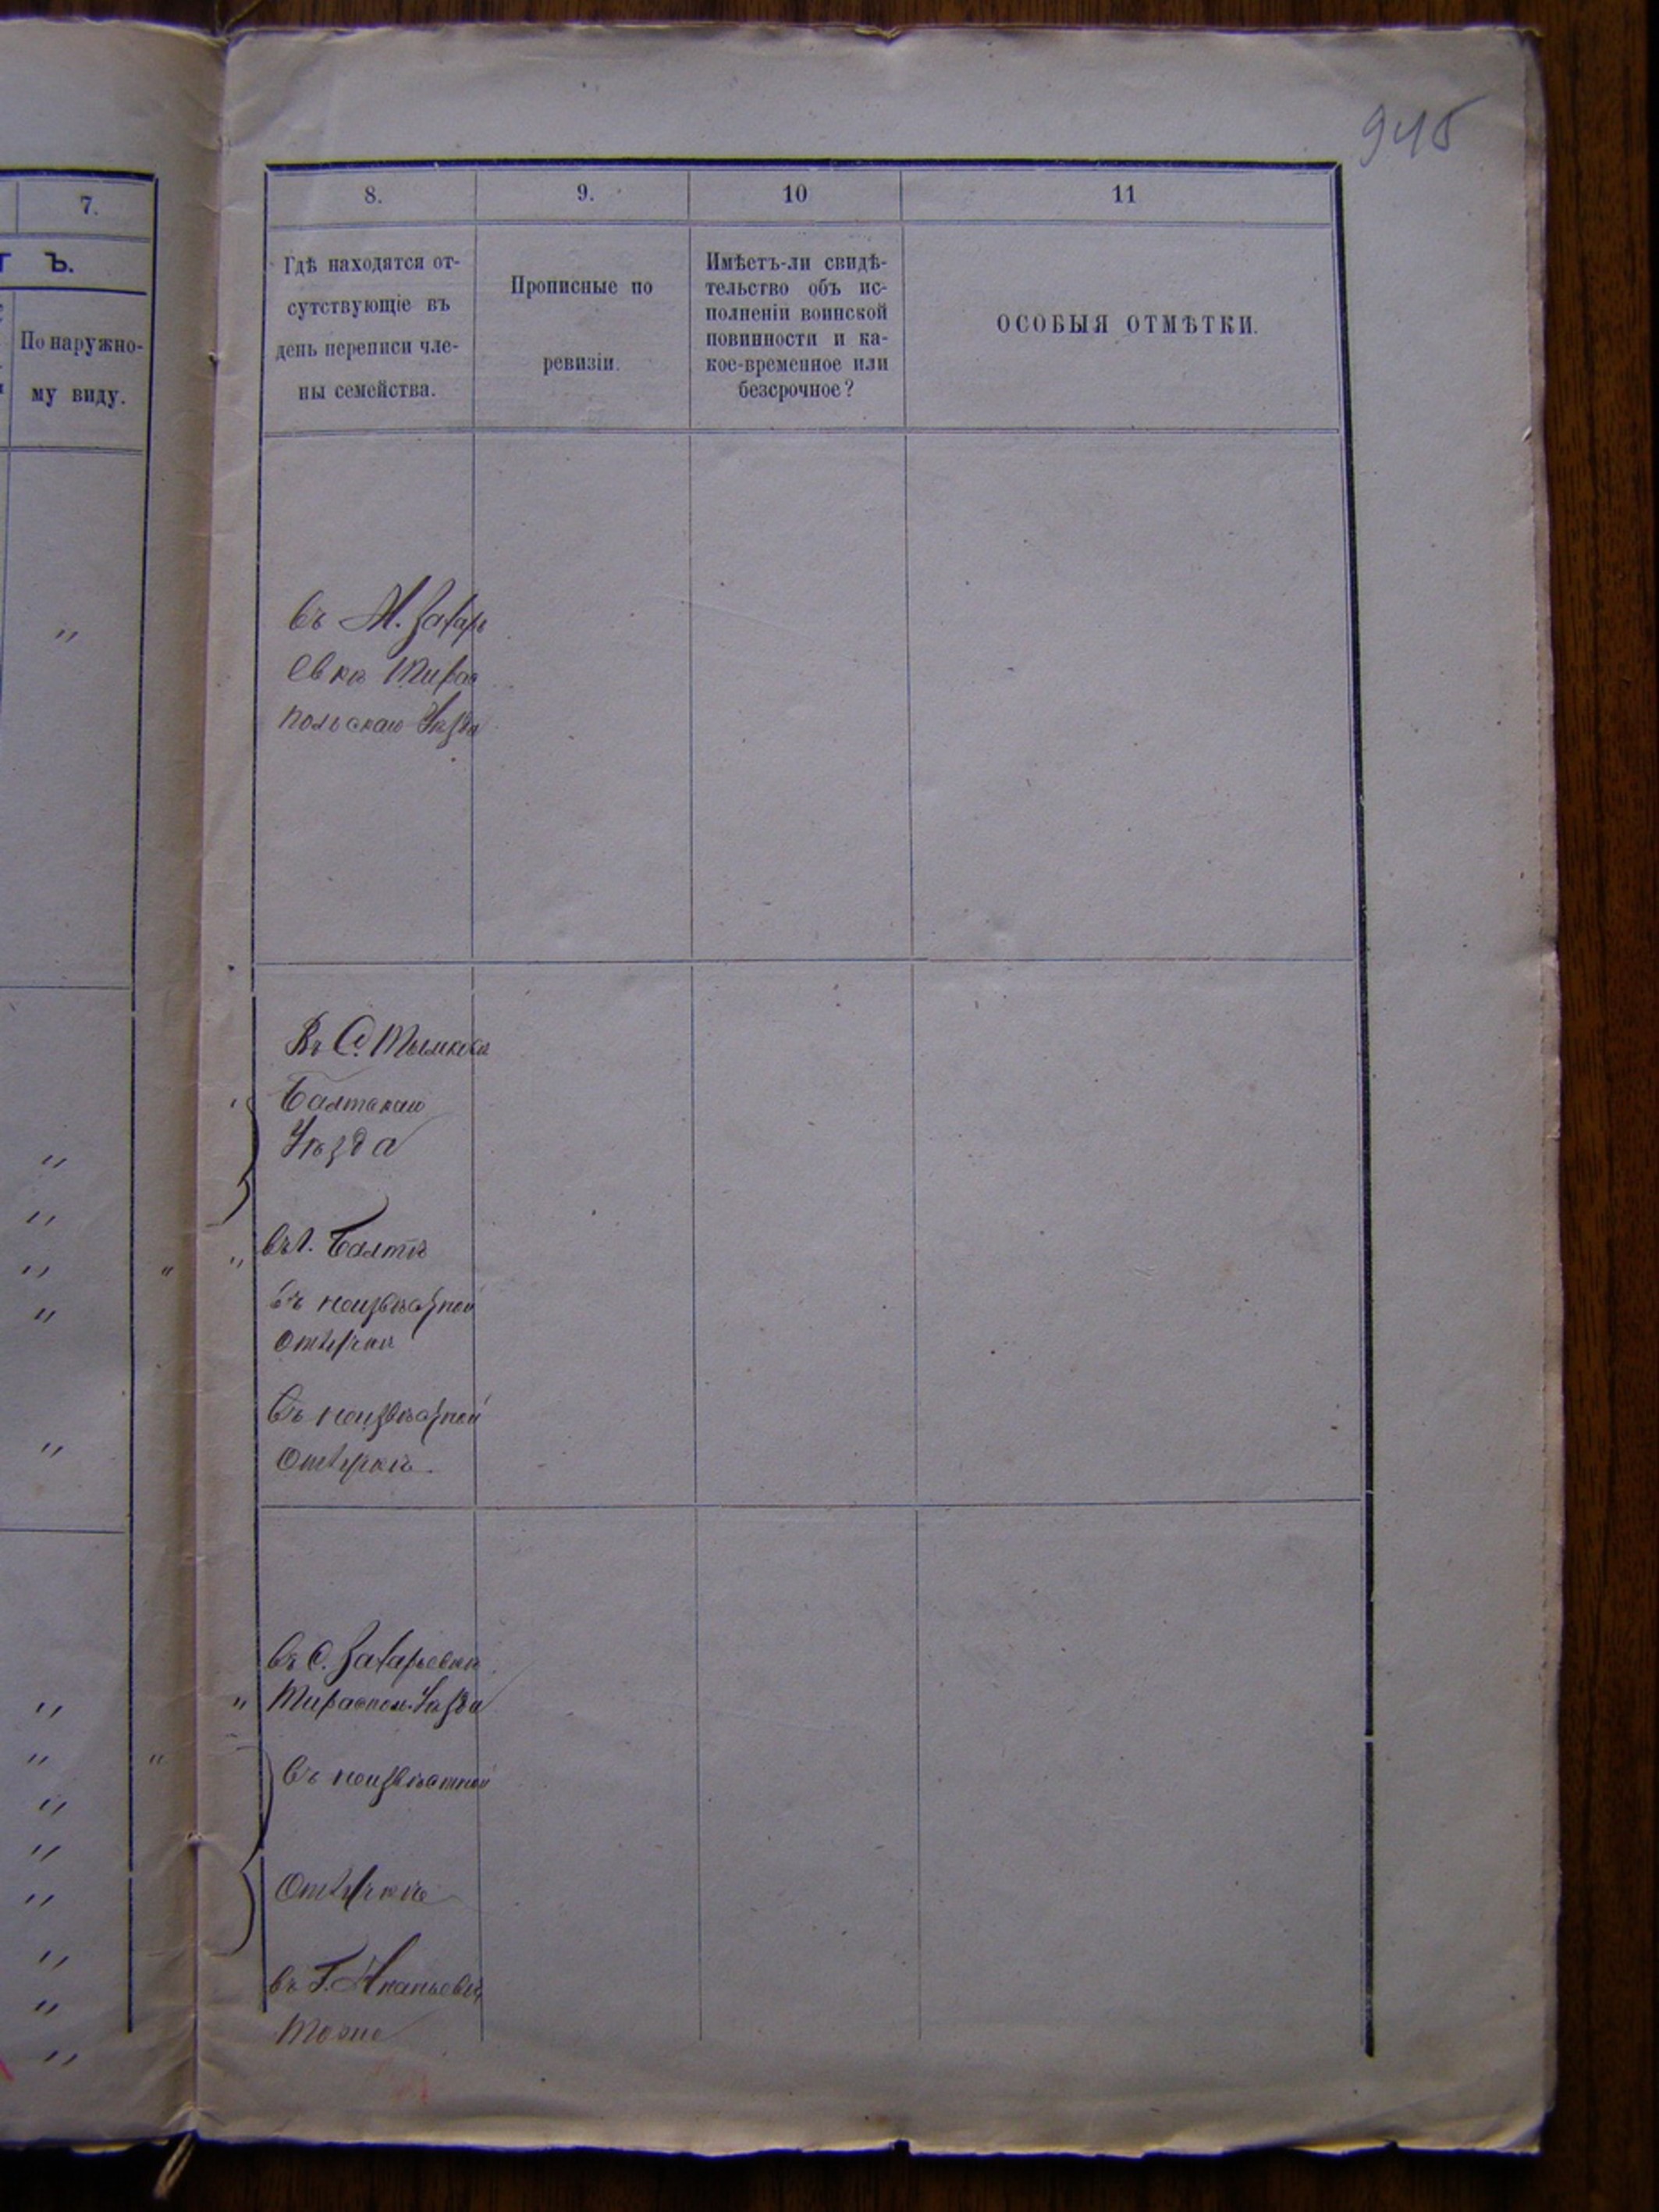 945
7.
Ъ.
По наружно-
му виду.
8.
9.
10
11
Гдѣ находятся от-
сутствующіе въ
день переписи чле-
ны семейства.
Прописные по
ревизіи.
Имѣетъ-ли свидѣ-
тельство объ ис-
полненіи воинской
повинности и ка-
кое-временное или
безсрочное?
ОСОБЫЯ ОТМѢТКИ.
въ М. Захарь
евкѣ Тирас
польскаго Уѣзда
Въ С.
Балтскаго
Уѣзда
въ г. Балтѣ
въ неизвѣстной
отлучкѣ
Въ неизвѣстной
Отлучкѣ.
въ С. Захарьевкѣ
Тираспол. Уѣзда
въ неизвѣстной
Отлучкѣ
въ Г. Ананьевѣ
тоже